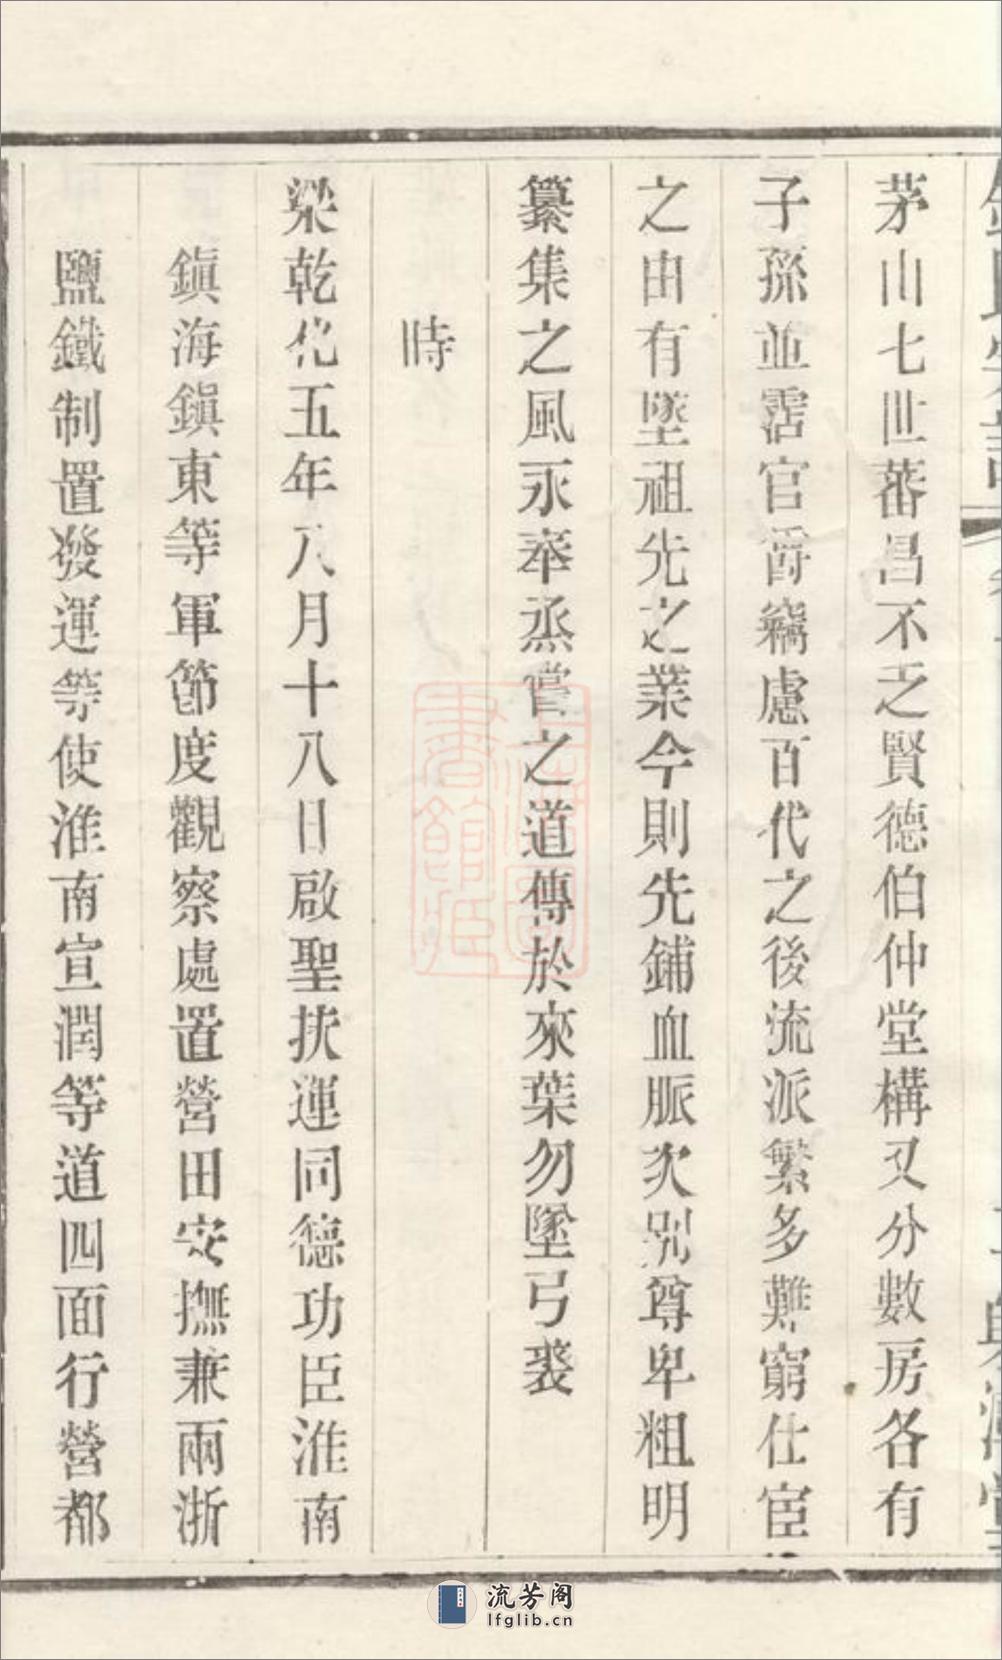 茅山七世蕃昌不乏賢德伯仲堂構又分數房各有
子孫並霑官爵竊慮百代之後流派繁多難窮仕宦
之由有墜祖先之業今則先鋪血脈次别尊卑粗明
纂集之風永奉烝嘗之道傳於來葉勿墜弓裘
時
梁乾化五年八月十八日啟聖扶運同德功臣淮南
鎭海鎭東等軍節度觀察處置營田安撫兼兩浙
鹽鐵制置發運等使淮南宣潤等道四面行營都
上海圖書館藏
流芳阁
lfglib.cn